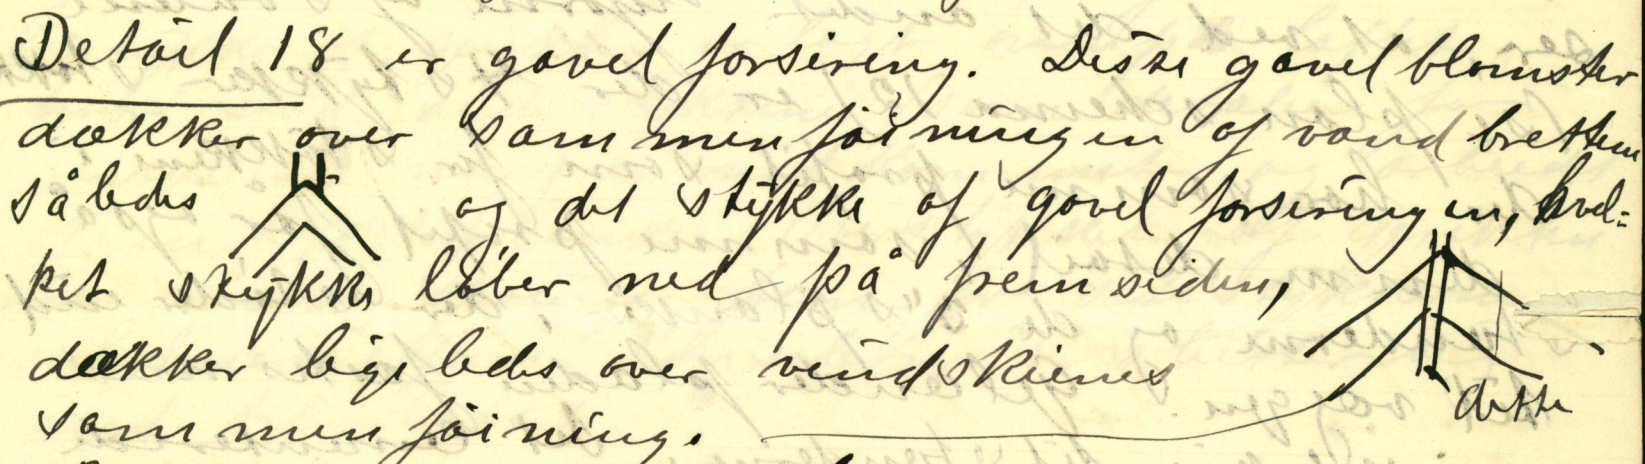 Detail 18 er gavel forsiring. Disse gavel blomster
dækker over sammenföiningen af vand brettene
således og det stykke af gavel forsiringen, hvel-
ket stykke löber ned på fremsiden,
dækker ligeledes over vindskienes
dette
sammenföining.